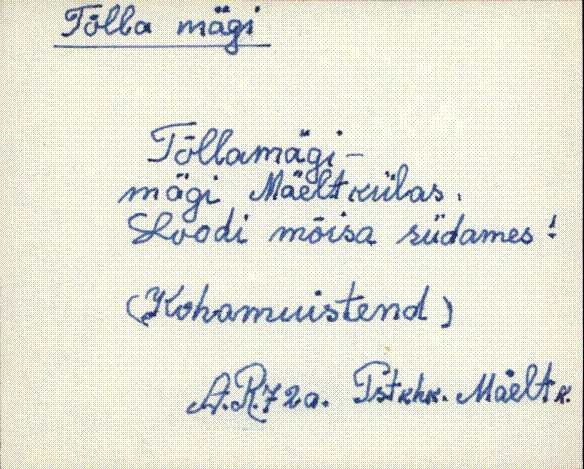 Tõlla mägi
Tõllamägi –
mägi Mäeltkülas.
Loodi mõisa südames!
(Kohamuistend)
A.R. 72a. Pstkhk. Mäelt k.